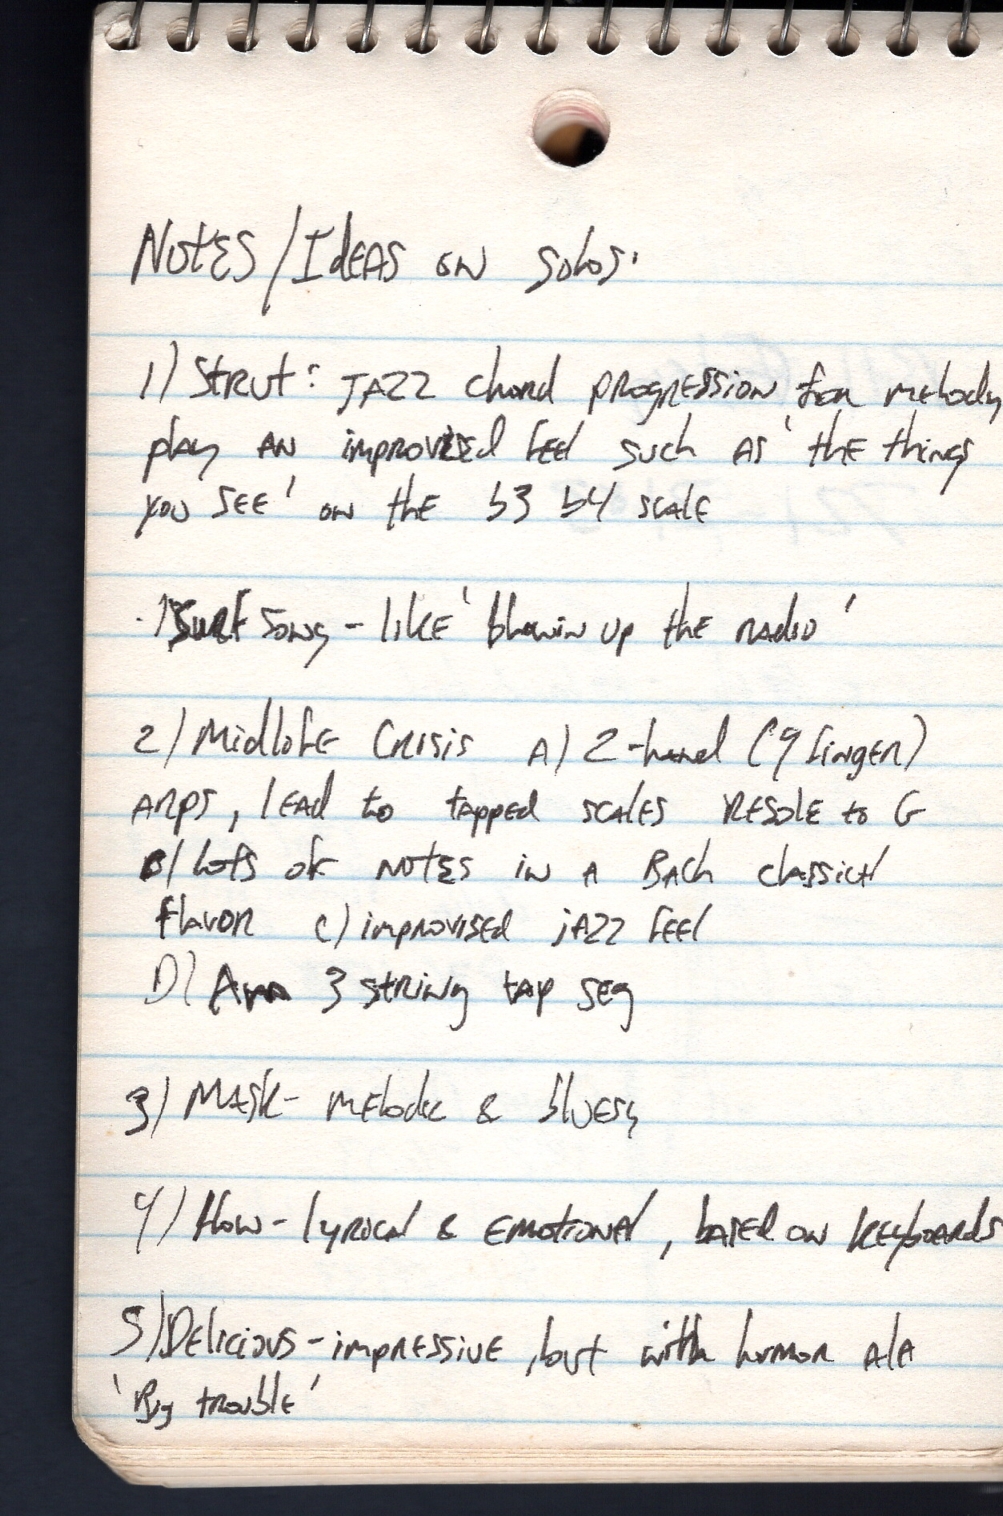 Notes/Ideas on solos:
1) Strut: Jazz chord progression for melody
play an improvised feel such as 'the things
you see' on the b3 b4 scale
Surf song - like 'blowin up the radio'
2) Midlife Crisis A) 2-hand (9 finger)
arps, lead to tapped scales resole to G
B) lots of notes in a Bach classical
flavor C) improvised jazz feel
D) 3 string tap seq
3) Mask - melodic & bluesy
4) How - lyrical & emotional, based on keyboards
5) Delicious - impressive, but with humor ala
'Big trouble'